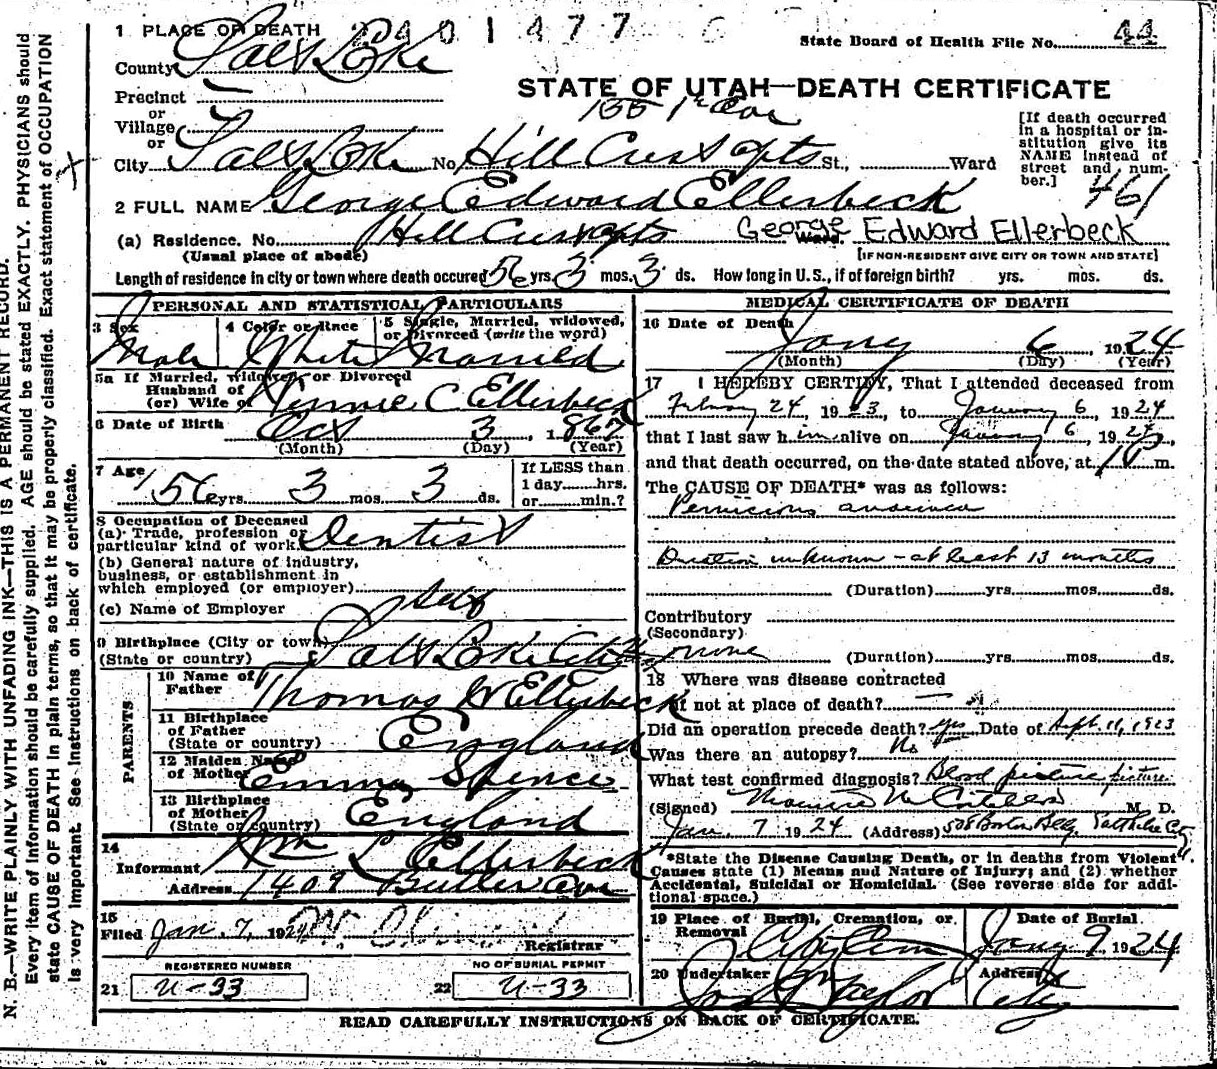 1 PLACE OF DEATH 2401477
State Board of Health File No. 44
County Salt Lake
STATE OF UTAH—DEATH CERTIFICATE
Precinct
or
Village
or
155 1st Ave
City Salt Lake No. Hill Crest apts St., Ward
[If death occurred
in a hospital or in-
stitution give its
NAME instead of
street and num-
ber.]
461
2 FULL NAME George Edward Ellerbeck
(a) Residence. No. Hill Crest apts Ward. George Edward Ellerbeck
(Usual place of abode) [IF NON-RESIDENT GIVE CITY OR TOWN AND STATE]
Length of residence in city or town where death occured 56 yrs. 3 mos. 3 ds. How long in U. S., if of foreign birth? yrs. mos. ds.
PERSONAL AND STATISTICAL PARTICULARS
3 Sex 4 Color or Race 5 Single, Married, widowed,
or Divorced (write the word)
Male White Married
5a If Married, widowed, or Divorced
Husband of
(or) Wife of Minnie C. Ellerbeck
6 Date of Birth Oct 3, 1867
(Month) (Day) (Year)
7 Age 56 yrs. 3 mos. 3 ds.
If LESS than
1 day......hrs.
or......min.?
8 Occupation of Deceased
(a) Trade, profession or
particular kind of work. Dentist
(b) General nature of industry,
business, or establishment in
which employed (or employer)
(c) Name of Employer Self
9 Birthplace (City or town) Salt Lake City
(State or country)
PARENTS
10 Name of
Father Thomas W Ellerbeck
11 Birthplace
of Father
(State or country) England
12 Maiden Name
of Mother Emma Spence
13 Birthplace
of Mother
(State or country) England
14
Informant Wm L Ellerbeck
Address 1409 Butler Ave
15
Filed Jan. 7, 1924
Registrar
REGISTERED NUMBER NO OF BURIAL PERMIT
21 U-33 22 U-33
MEDICAL CERTIFICATE OF DEATH
16 Date of Death
Jany 6, 1924
(Month) (Day) (Year)
17 I HEREBY CERTIFY, That I attended deceased from
24, 1923, to January 6, 1924
that I last saw h im alive on January 6, 1924,
and that death occurred, on the date stated above, at m.
The CAUSE OF DEATH* was as follows:
Pernicious anaemia
Duration unknown - at least 13 months
(Duration)......yrs......mos......ds.
Contributory
(Secondary)
none (Duration)......yrs......mos......ds.
18 Where was disease contracted
if not at place of death? —
Did an operation precede death? yes Date of Sept. 11, 1923
Was there an autopsy? No
What test confirmed diagnosis? Blood picture picture
(Signed) M. D.
Jan. 7 1924 (Address) 508 Boston Bldg Salt Lake City
*State the Disease Causing Death, or in deaths from Violent
Causes state (1) Means and Nature of Injury; and (2) whether
Accidental, Suicidal or Homicidal. (See reverse side for addi-
tional space.)
19 Place of Burial, Cremation, or
Removal City Cem
Date of Burial
Jany 9 1924
20 Undertaker Jos Taylor
Address City
READ CAREFULLY INSTRUCTIONS ON BACK OF CERTIFICATE.
N. B.—WRITE PLAINLY WITH UNFADING INK—THIS IS A PERMANENT RECORD.
Every item of information should be carefully supplied. AGE should be stated EXACTLY. PHYSICIANS should
state CAUSE OF DEATH in plain terms, so that it may be properly classified. Exact statement of OCCUPATION
is very important. See instructions on back of certificate.